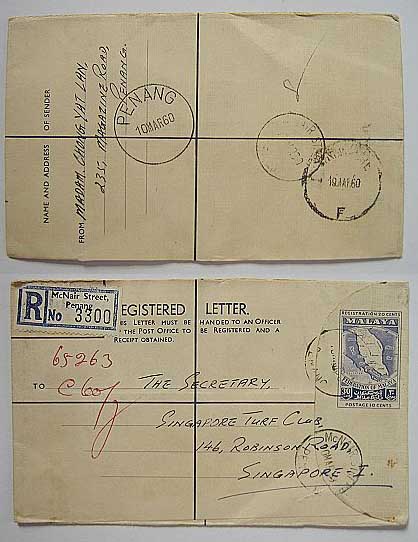 NAME AND ADDRESS OF SENDER
FROM MADAM CHONG YAT LAN,
235, MAGAZINE ROAD,
PENANG.
PENANG
10MAR60
F
R
McNair Street,
Penang
No 3300
REGISTERED LETTER.
LETTER MUST BE HANDED TO AN OFFICER
THE POST OFFICE TO BE REGISTERED AND A
RECEIPT OBTAINED.
REGISTRATION 20 CENTS
MALAYA
FEDERATION OF MALAYA
30
POSTAGE 10 CENTS
65263
TO THE SECRETARY,
SINGAPORE TURF CLUB,
146, ROBINSON ROAD,
SINGAPORE-1.
McNAIR